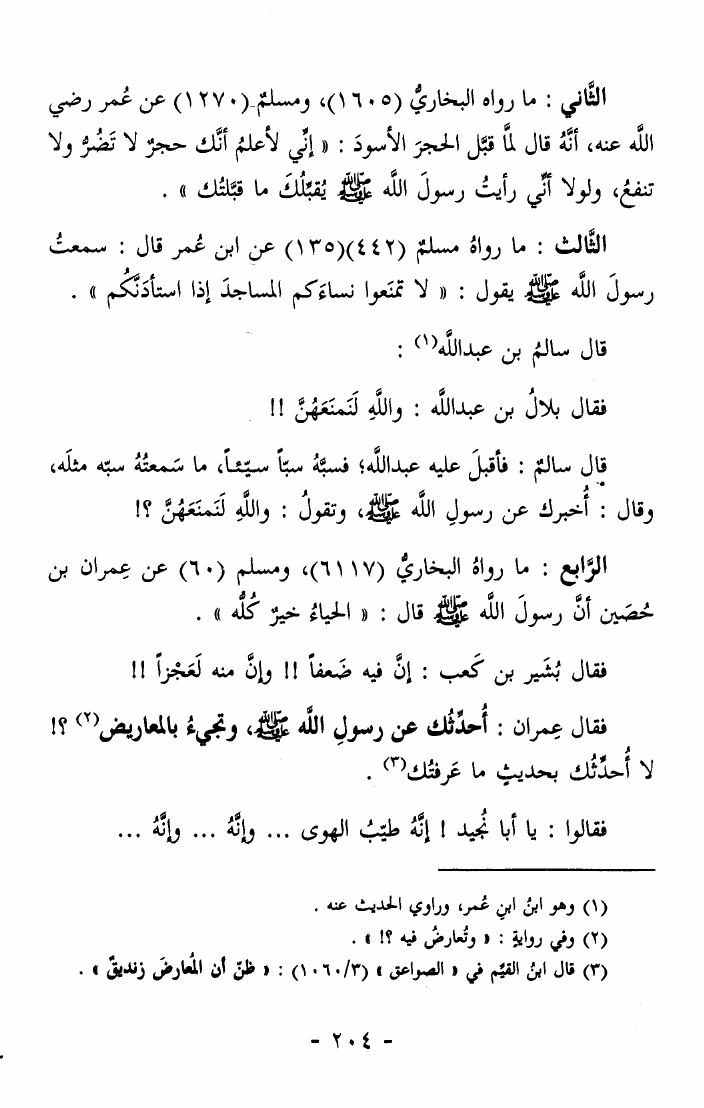 الثَّاني : ما رواه البخاريُّ (١٦٠٥)، ومسلمٌ (١٢٧٠) عن عُمر رضي
اللَّه عنه، أنَّهُ قال لمَّا قبَّل الحجرَ الأسودَ : « إنِّي لأعلمُ أنَّك حجرٌ لا تَضُرُّ ولا
تنفعُ، ولولا أنِّي رأيتُ رسولَ اللَّه ﷺ يُقبِّلُكَ ما قبَّلتُك » .
الثَّالث : ما رواهُ مسلمٌ (٤٤٢)(١٣٥) عن ابن عُمر قال : سمعتُ
رسولَ اللَّه ﷺ يقول : « لا تمنَعوا نساءَكم المساجدَ إذا استأذنَّكُم » .
قال سالمُ بن عبداللَّه(١) :
فقال بلالُ بن عبداللَّه : واللَّهِ لَنَمنَعَهُنَّ !!
قال سالمٌ : فأقبلَ عليه عبداللَّه؛ فسبَّهُ سبّاً سيّئاً، ما سَمعتُهُ سبّه مثلَه،
وقال : أُخبرك عن رسولِ اللَّه ﷺ، وتقولُ : واللَّهِ لَنَمنَعَهُنَّ ؟!
الرَّابع : ما رواهُ البخاريُّ (٦١١٧)، ومسلم (٦٠) عن عِمران بن
حُصَين أنَّ رسولَ اللَّه ﷺ قال : « الحياءُ خيرٌ كُلُّه » .
فقال بُشَير بن كَعب : إنَّ فيه ضَعفاً !! وإنَّ منه لَعَجْزاً !!
فقال عِمران : أُحدِّثُك عن رسولِ اللَّه ﷺ، وتجيءُ بالمعاريض(٢) ؟!
لا أُحدِّثُك بحديثٍ ما عَرفتُك(٣) .
فقالوا : يا أبا نُجيد ! إنَّهُ طيّبُ الهوى ... وإنَّهُ ... وإنَّهُ ...
(١) وهو ابنُ ابنِ عُمر، وراوي الحديث عنه .
(٢) وفي روايةٍ : « وتُعارضُ فيه ؟! » .
(٣) قال ابنُ القيِّم في « الصواعق » (٣/١٠٦٠) : « ظنّ أن المُعارضَ زنديقٌ » .
- ٢٠٤ -